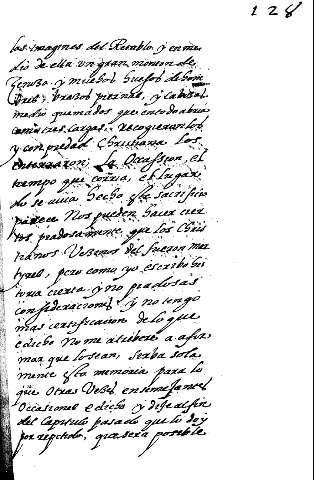 128
las imagenes del Retablo, y en me
dio de ella un gran monton de
Zeniza y muchos huesos de hom
bres, brazos piernas, y cabezas
medio quemados que en todo abria
como tres cargas, recogieronlos
y con piedad Christiana los
enterraron, la Occassion, el
tiempo que corria, el lugar
do se auia hecho este sacrificio
parece Nos pueden hacer cier
tos piadosamente, que los Chris
tianos Vezinos del fueron mar
tyres, pero como yo escribo his
toria cierta y no piadosas
consideraciones y no tengo
mas certificacion de lo que
e dicho No me atribere a afir
mar que lo sean, serba sola
mente esta memoria para lo
que otras Vezes en semejantes
Ocasiones e dicho y dije al fin
del Capitulo pasado que lo doy
por repetido, que sera posible